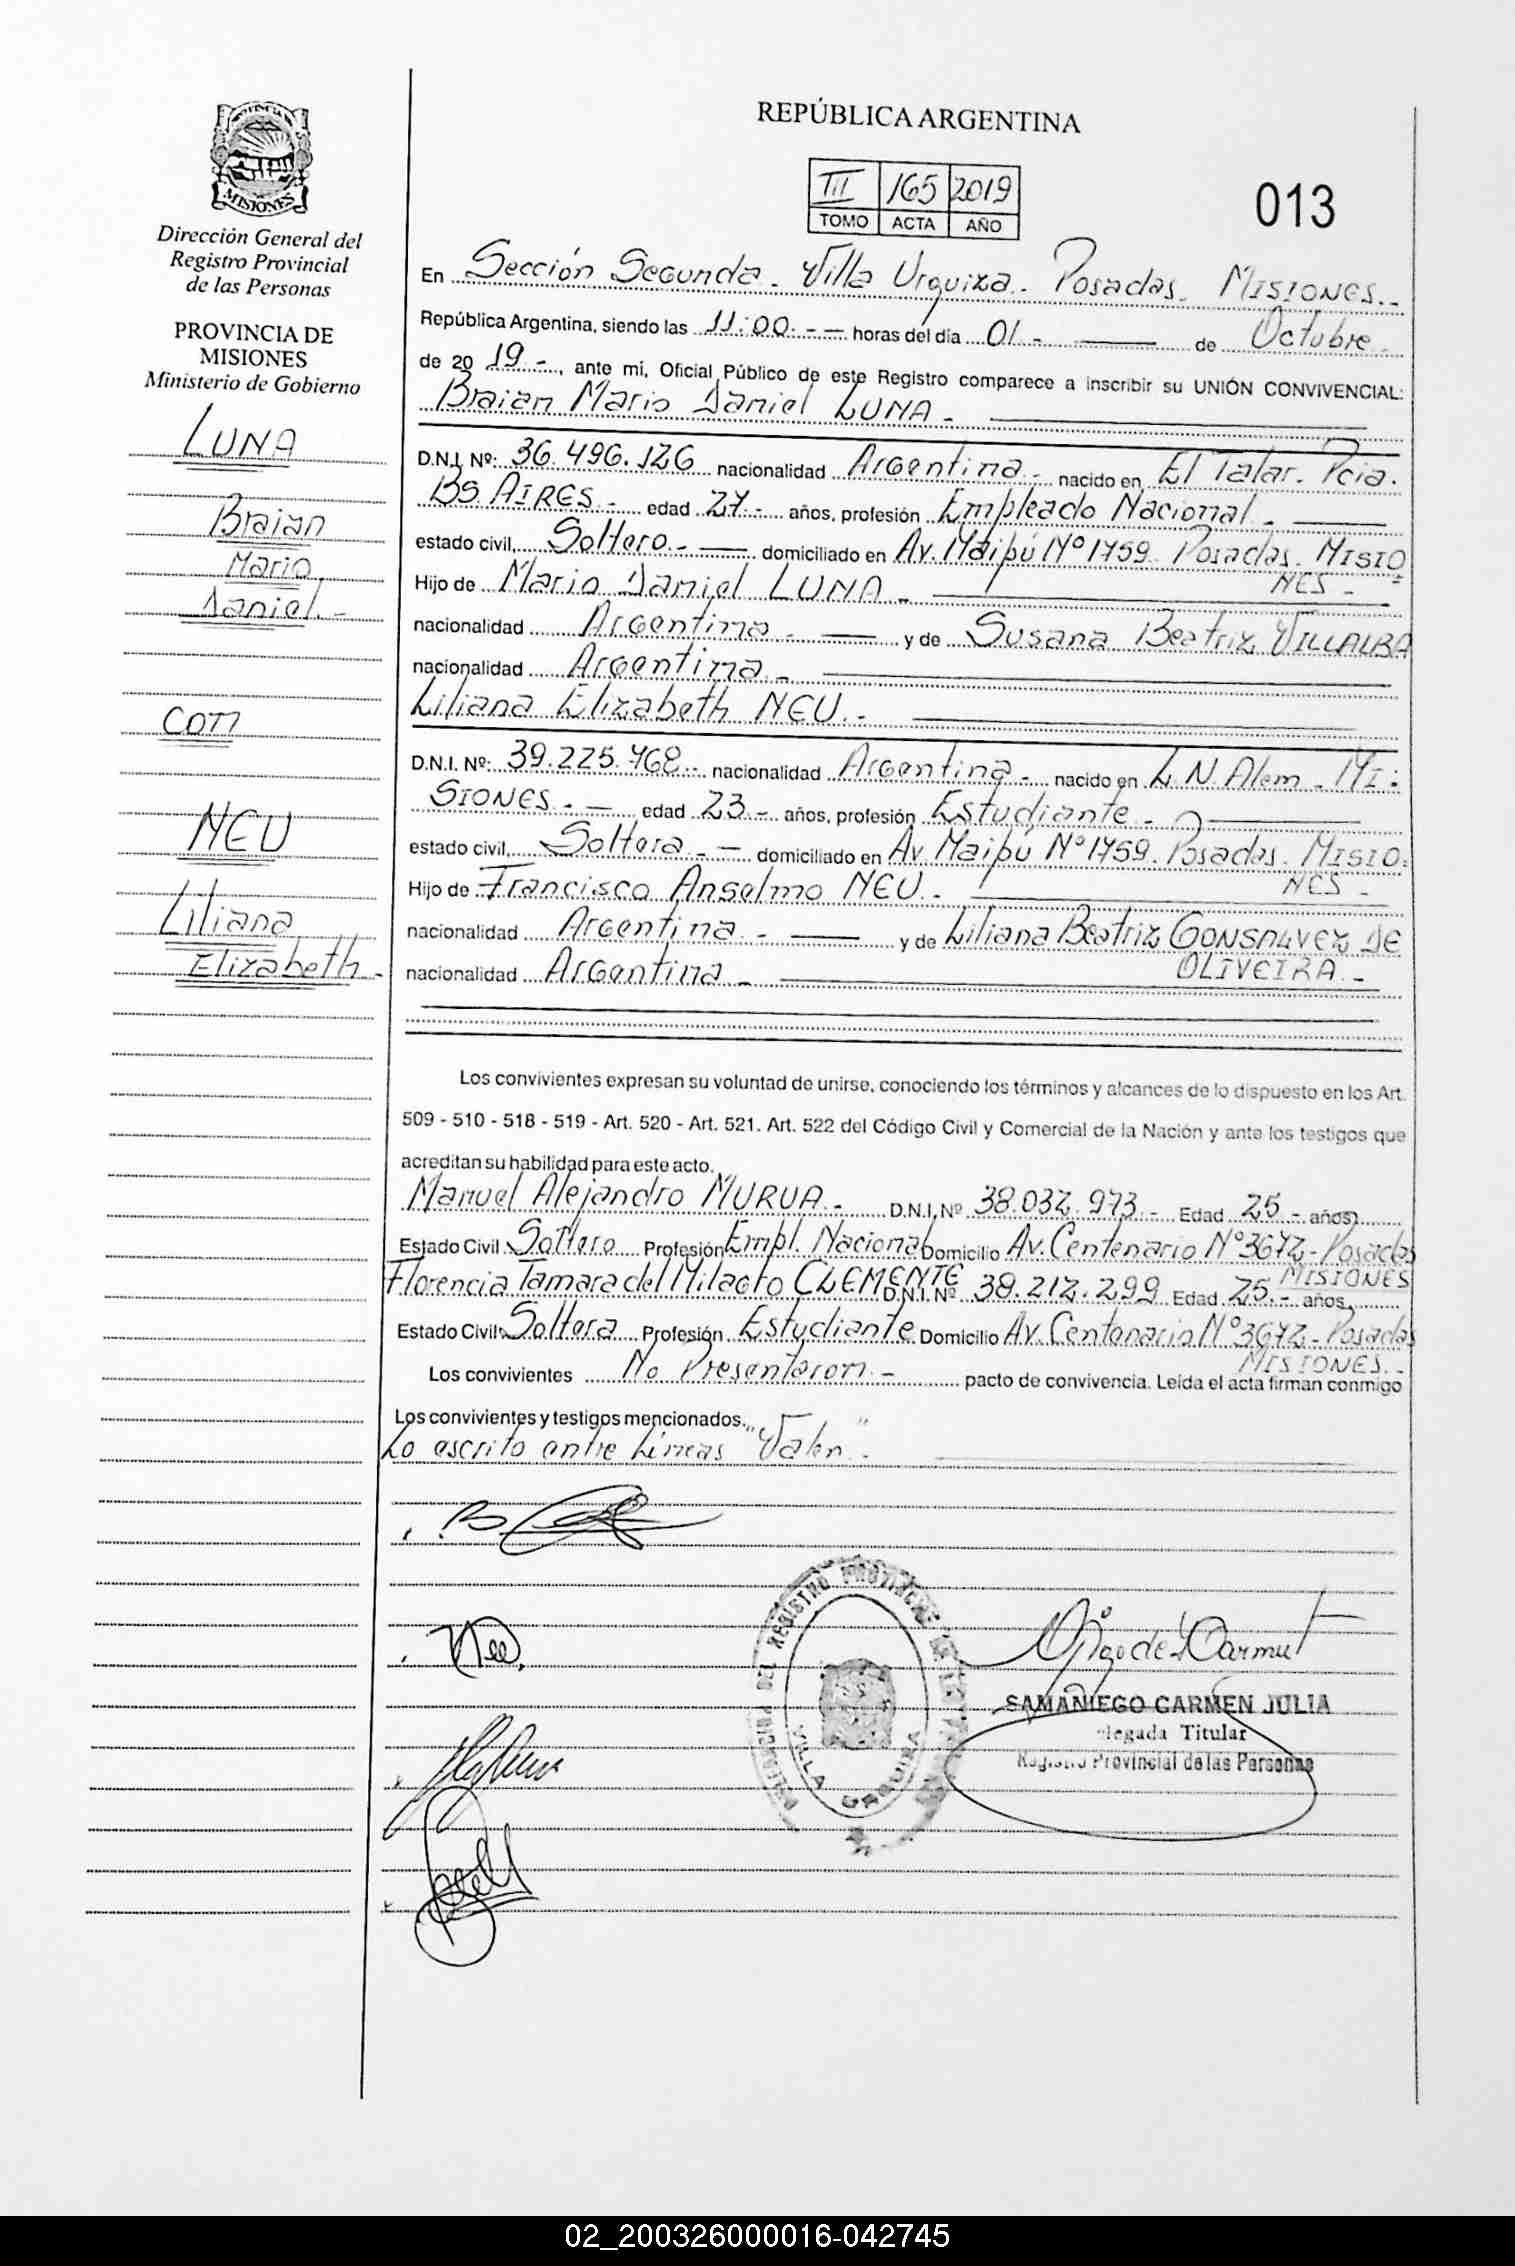 REPÚBLICA ARGENTINA
PROVINCIA
MISIONES
III 165 2019
TOMO ACTA AÑO
013
Dirección General del
Registro Provincial
de las Personas
PROVINCIA DE
MISIONES
Ministerio de Gobierno
LUNA
Braian
Mario
Daniel.-
COM
NEU
Liliana
Elizabeth-
En Sección Segunda. Villa Urquiza. Posadas. MISIONES.-
República Argentina, siendo las 11:00.-- horas del día 01.- de Octubre-
de 20 19.-, ante mí, Oficial Público de este Registro comparece a inscribir su UNIÓN CONVIVENCIAL:
Braian Mario Daniel LUNA.-
D.N.I. Nº: 36.496.126 nacionalidad Argentina.- nacido en El Talar. Pcia.
BS. AIRES.- edad 27.- años, profesión Empleado Nacional.-
estado civil, Soltero.- domiciliado en Av. Maipú Nº 1759. Posadas. MISIO
NES.-
Hijo de Mario Daniel LUNA.-
nacionalidad Argentina.- y de Susana Beatriz VILLALBA
nacionalidad Argentina.-
Liliana Elizabeth NEU.-
D.N.I. Nº: 39.225.468.- nacionalidad Argentina.- nacido en L.N. Alem. MI:
SIONES.- edad 23.- años, profesión Estudiante.-
estado civil, Soltera.- domiciliado en Av. Maipú Nº 1759. Posadas. MISIO:
NES.-
Hijo de Francisco Anselmo NEU.-
nacionalidad Argentina.- y de Liliana Beatriz GONSALVEZ DE
OLIVEIRA.-
nacionalidad Argentina.-
Los convivientes expresan su voluntad de unirse, conociendo los términos y alcances de lo dispuesto en los Art.
509 - 510 - 518 - 519 - Art. 520 - Art. 521. Art. 522 del Código Civil y Comercial de la Nación y ante los testigos que
acreditan su habilidad para este acto.
Manuel Alejandro MURUA.- D.N.I. Nº 38.032.973.- Edad 25.- años,
Estado Civil Soltero Profesión Empl. Nacional Domicilio Av. Centenario Nº 3672- Posadas
MISIONES
Florencia Tamara del Milagto CLEMENTE D.N.I. Nº 38.212.299 Edad 25.- años,
Estado Civil: Soltera Profesión Estudiante Domicilio Av. Centenario Nº 3672- Posadas
MISIONES.-
Los convivientes No Presentaron.- pacto de convivencia. Leída el acta firman conmigo
Los convivientes y testigos mencionados.
Lo escrito entre Líneas "Valen".-
REGISTRO PROVINCIAL DE LAS
VILLA URQUIZA
SAMANIEGO CARMEN JULIA
legada Titular
Registro Provincial de las Personas
02_200326000016-042745